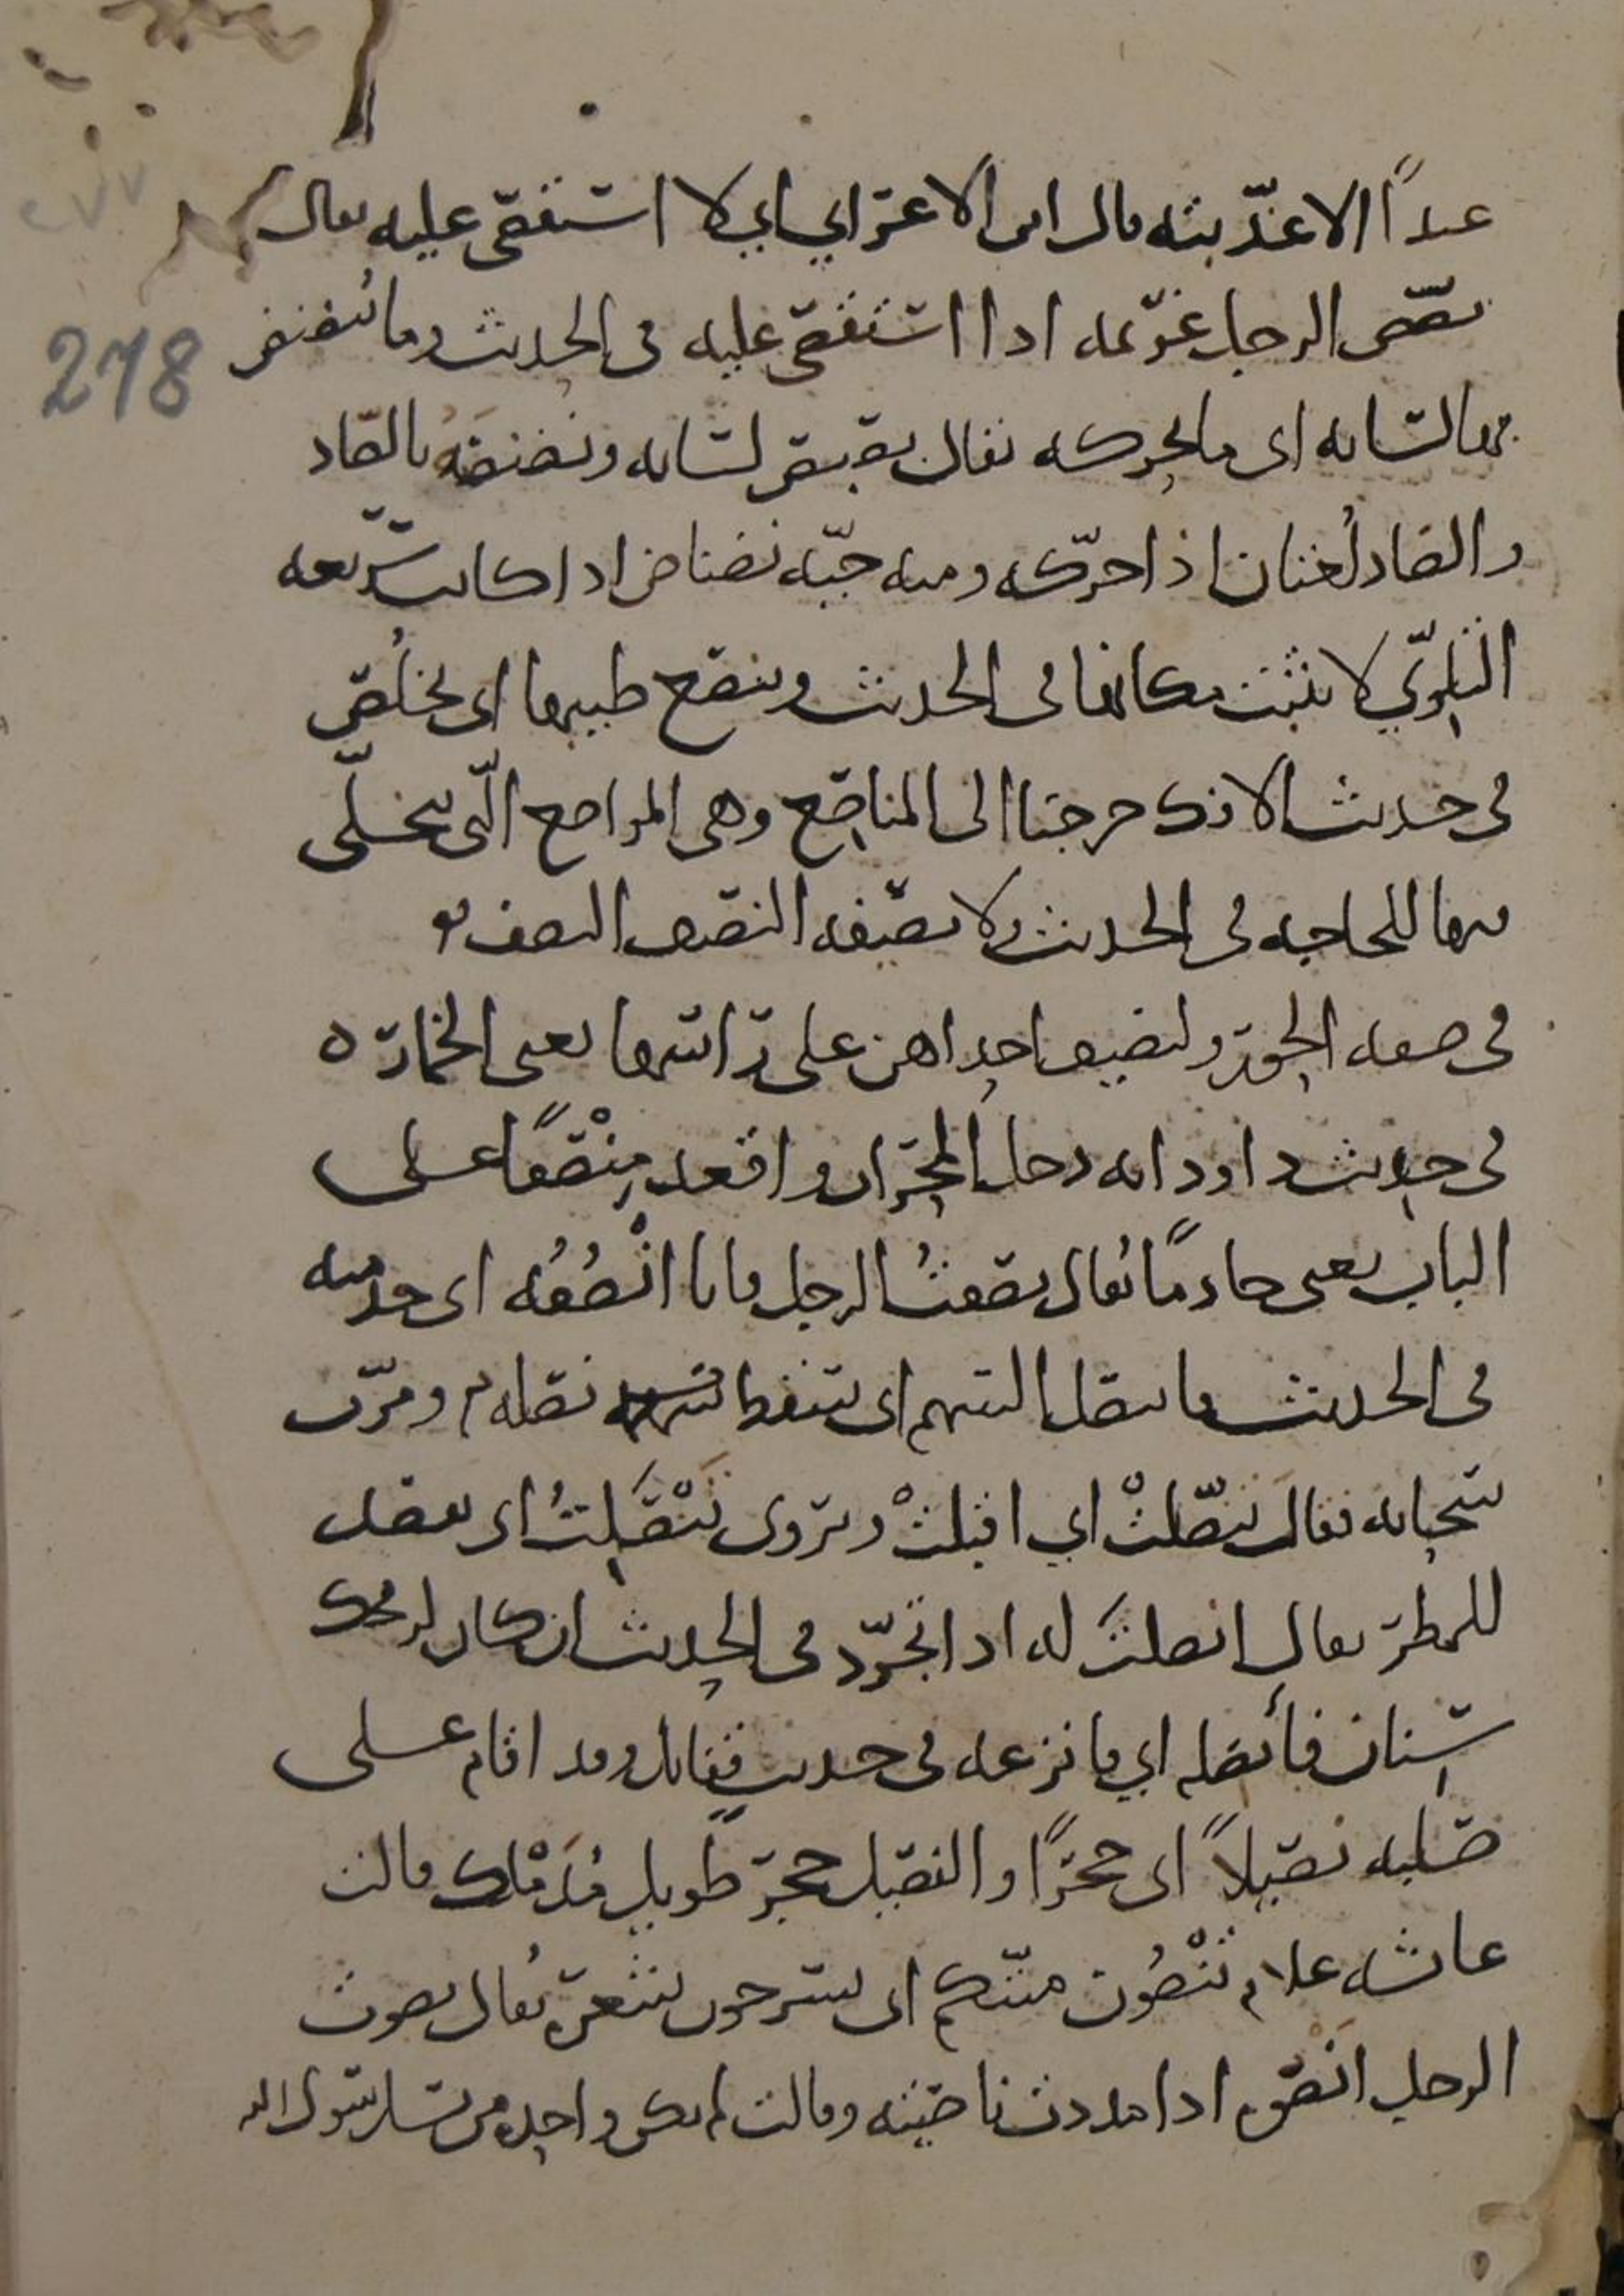 عبداً الا عذّبته قال ابن الاعرابي اي لا استقصى عليه يقال
نصّص الرجل غريمه اذا استقصى عليه في الحديث وما ينصنص
بها لسانه اى ما يحركه يقال نصنص لسانه ونضنضه بالصاد
والضاد لُغتان اذا حرّكه ومنه حيّه نضناض اذا كانت سريعه
التلوّي لا تثبت مكانها في الحديث وينصع طيبها اى يخلُص
في حديث الافك خرجنا الى المناصع وهى المواضع الّتى يتخلّى
فيها للحاجه في الحديث ولا نصيفه النصيف النصف
في صفه الحور ولنصيف احداهن على راسها يعنى الخمار ه
في حديث داود انه دخل المحراب واقعد مِنْصفًا على
الباب يعنى خادمًا يُقال نصفتُ الرجل فانا انْصُفُه اى خدمته
في الحديث فانتصل السهم اى سقط نصله ومرّت
سحابه فقال تنصّلتْ اي اقبلتْ ويروى تَنْصَلِتُ اى تقصد
للمطر يقال انصلتَ له اذا تجرّد في الحديث ان كان لرمحك
سنان فأنصله اي فانزعه في حديثٍ فقاتل وقد اقام على
صلبه نصيلاً اى حجرًا والنصيل حجر طويل مُدَمْلك قالت
عائشه علام تَنْصُون ميّتكم اى تسرحون شعره يُقال نصوت
الرجل انصوه اذا مددت ناصيته وقالت لم يكن واحده من نسا رسول الله
278
٢٧٧